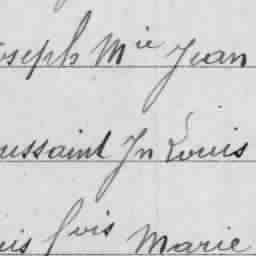 oseph Mie Jean
oussaint Jn Louis
uis Fois Marie